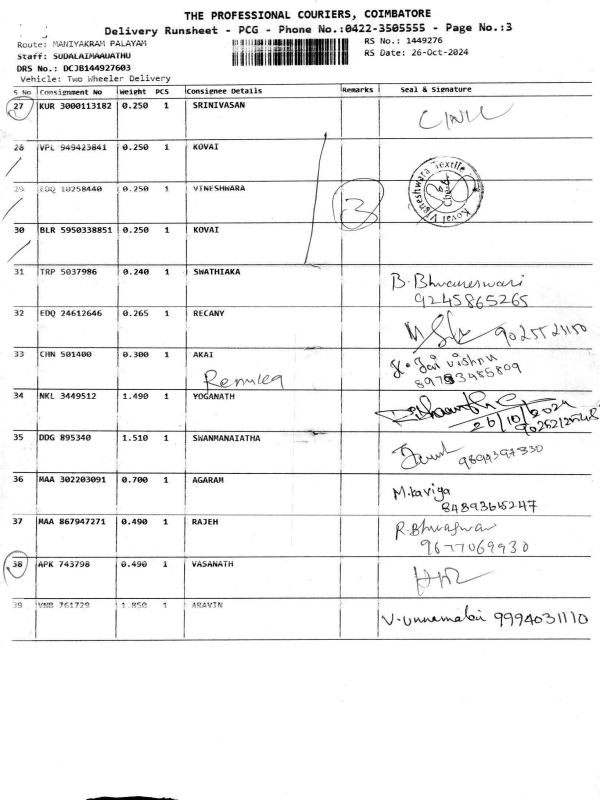 THE PROFESSIONAL COURIERS, COIMBATORE
Delivery Runsheet - PCG - Phone No.:0422-3505555 - Page No.:3
Route: MANIYAKRAM PALAYAM
RS No.: 1449276
Staff: SUDALAIMAAUATHU
RS Date: 26-Oct-2024
DRS No.: DCJB144927603
Vehicle: Two Wheeler Delivery
S No Consignment No Weight PCS Consignee Details Remarks Seal & Signature
27 KUR 3000113182 0.250 1 SRINIVASAN
28 VPL 949423841 0.250 1 KOVAI
Kovai Vigneshwara Textile
29 EDQ 10258440 0.250 1 VINESHWARA 3
30 BLR 5950338851 0.250 1 KOVAI
31 TRP 5037986 0.240 1 SWATHIAKA B. Bhuvaneswari
9245865265
32 EDQ 24612646 0.265 1 RECANY
33 CHN 501400 0.300 1 AKAI K. Jai vishnu
Renuka
34 NKL 3449512 1.490 1 YOGANATH
26/10/2024
35 DDG 895340 1.510 1 SWANMANAIATHA
36 MAA 302203091 0.700 1 AGARAM M.kaviya
8489365247
37 MAA 867947271 0.490 1 RAJEH
9677069930
38 APK 743798 0.490 1 VASANATH
39 VNB 761729 1.850 1 ARAVIN V-unnamalai 9994031110